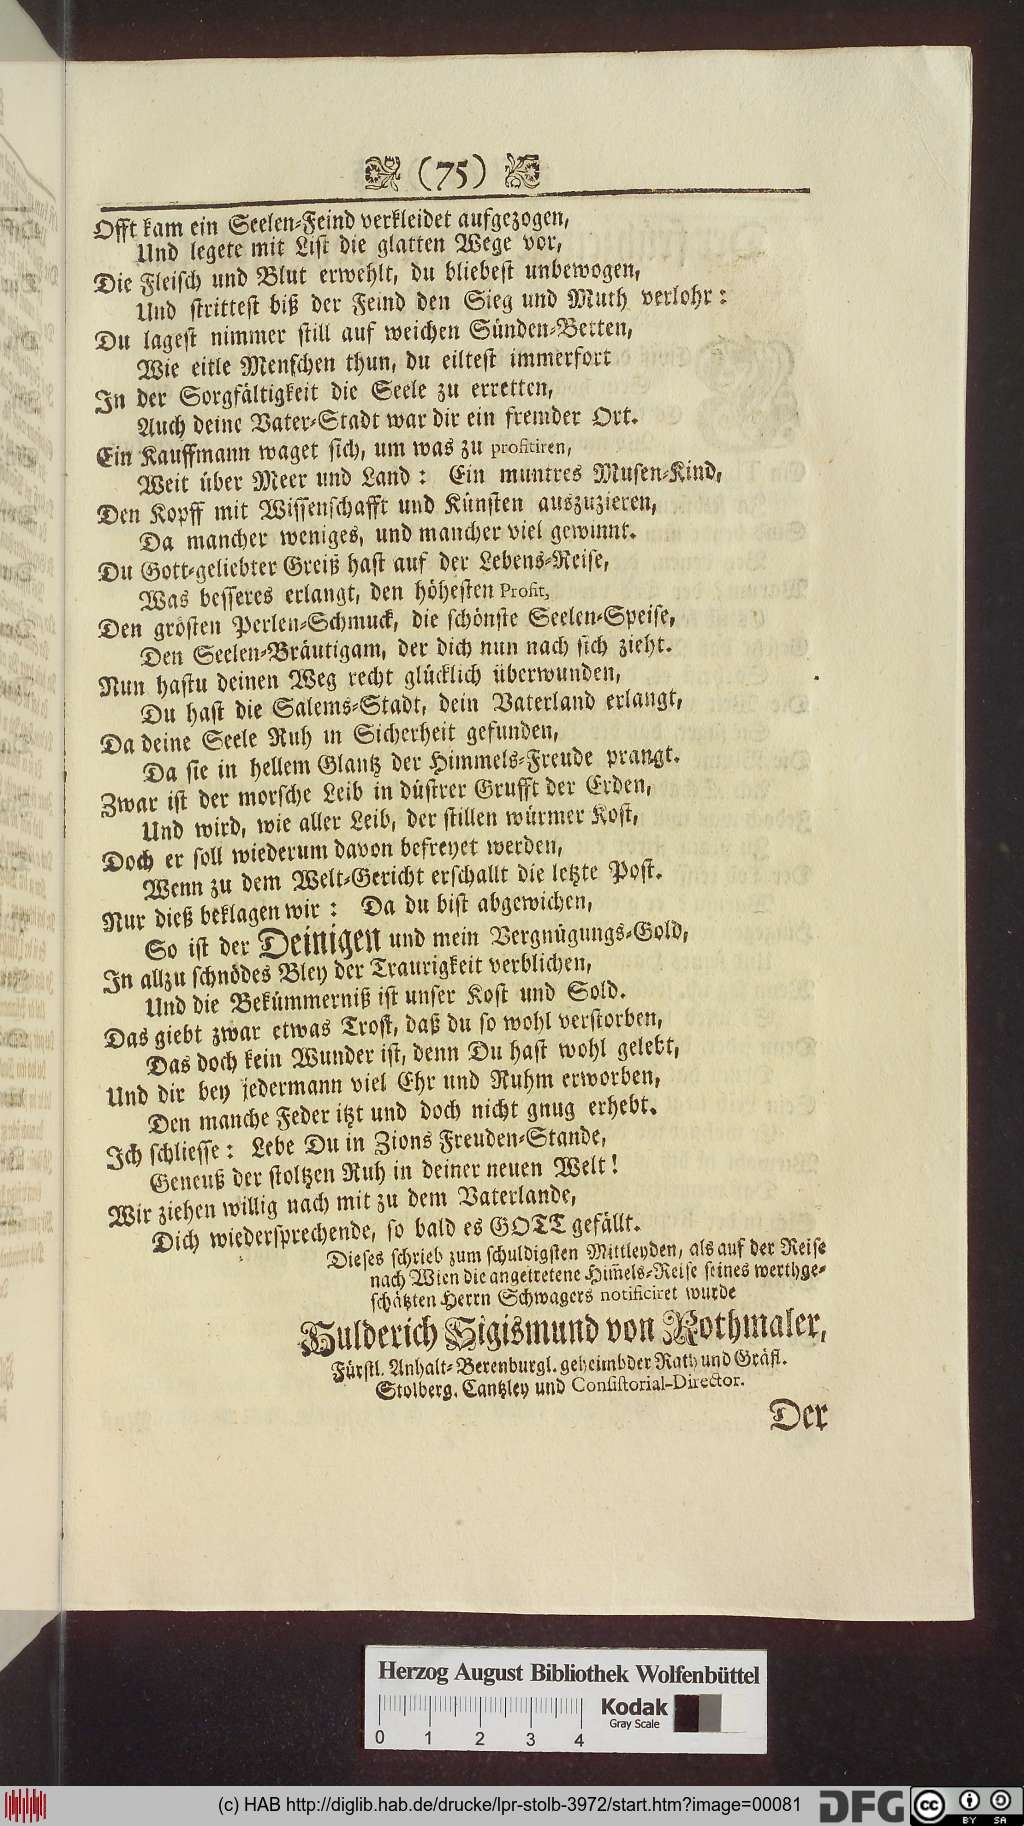 (75)
Offt kam ein Seelen-Feind verkleidet aufgezogen,
Und legete mit List die glatten Wege vor,
Die Fleisch und Blut erwehlt, du bliebest unbewogen,
Und strittest biß der Feind den Sieg und Muth verlohr:
Du lagest nimmer still auf weichen Sünden-Betten,
Wie eitle Menschen thun, du eiltest immerfort
In der Sorgfältigkeit die Seele zu erretten,
Auch deine Vater-Stadt war dir ein fremder Ort.
Ein Kauffmann waget sich, um was zu profitiren,
Weit über Meer und Land: Ein muntres Musen-Kind,
Den Kopff mit Wissenschafft und Künsten auszuzieren,
Da mancher weniges, und mancher viel gewinnt.
Du Gott-geliebter Greiß hast auf der Lebens-Reise,
Was besseres erlangt, den höhesten Profit,
Den grösten Perlen-Schmuck, die schönste Seelen-Speise,
Den Seelen-Bräutigam, der dich nun nach sich zieht.
Nun hastu deinen Weg recht glücklich überwunden,
Du hast die Salems-Stadt, dein Vaterland erlangt,
Da deine Seele Ruh in Sicherheit gefunden,
Da sie in hellem Glantz der Himmels-Freude prangt.
Zwar ist der morsche Leib in düstrer Grufft der Erden,
Und wird, wie aller Leib, der stillen würmer Kost,
Doch er soll wiederum davon befreyet werden,
Wenn zu dem Welt-Gericht erschallt die letzte Post.
Nur dieß beklagen wir: Da du bist abgewichen,
So ist der Deinigen und mein Vergnügungs-Gold,
In allzu schnödes Bley der Traurigkeit verblichen,
Und die Bekümmerniß ist unser Kost und Sold.
Das giebt zwar etwas Trost, daß du so wohl verstorben,
Das doch kein Wunder ist, denn Du hast wohl gelebt,
Und dir bey jedermann viel Ehr und Ruhm erworben,
Den manche Feder itzt und doch nicht gnug erhebt.
Ich schliesse: Lebe Du in Zions Freuden-Stande,
Geneuß der stoltzen Ruh in deiner neuen Welt!
Wir ziehen willig nach mit zu dem Vaterlande,
Dich wiedersprechende, so bald es GOTT gefällt.
Dieses schrieb zum schuldigsten Mittleyden, als auf der Reise
nach Wien die angetretene Him̃els-Reise seines werthge-
schätzten Herrn Schwagers notificiret wurde
Hulderich Sigismund von Rothmaler,
Fürstl. Anhalt-Berenburgl. geheimbder Rath und Gräfl.
Stolberg. Cantzley und Consistorial-Director.
Der
Herzog August Bibliothek Wolfenbüttel
Kodak
Gray Scale
0 1 2 3 4
(c) HAB http://diglib.hab.de/drucke/lpr-stolb-3972/start.htm?image=00081
DFG
cc BY SA